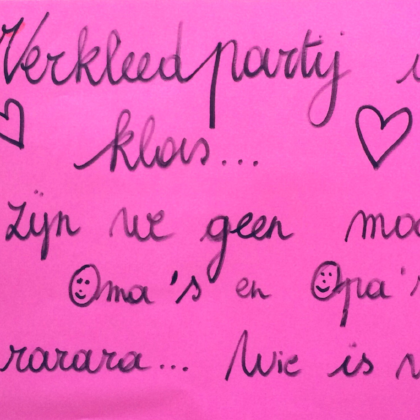 Verkleedparty
klas...
Zijn we geen
Oma's en Opa's
rarara... Wie is